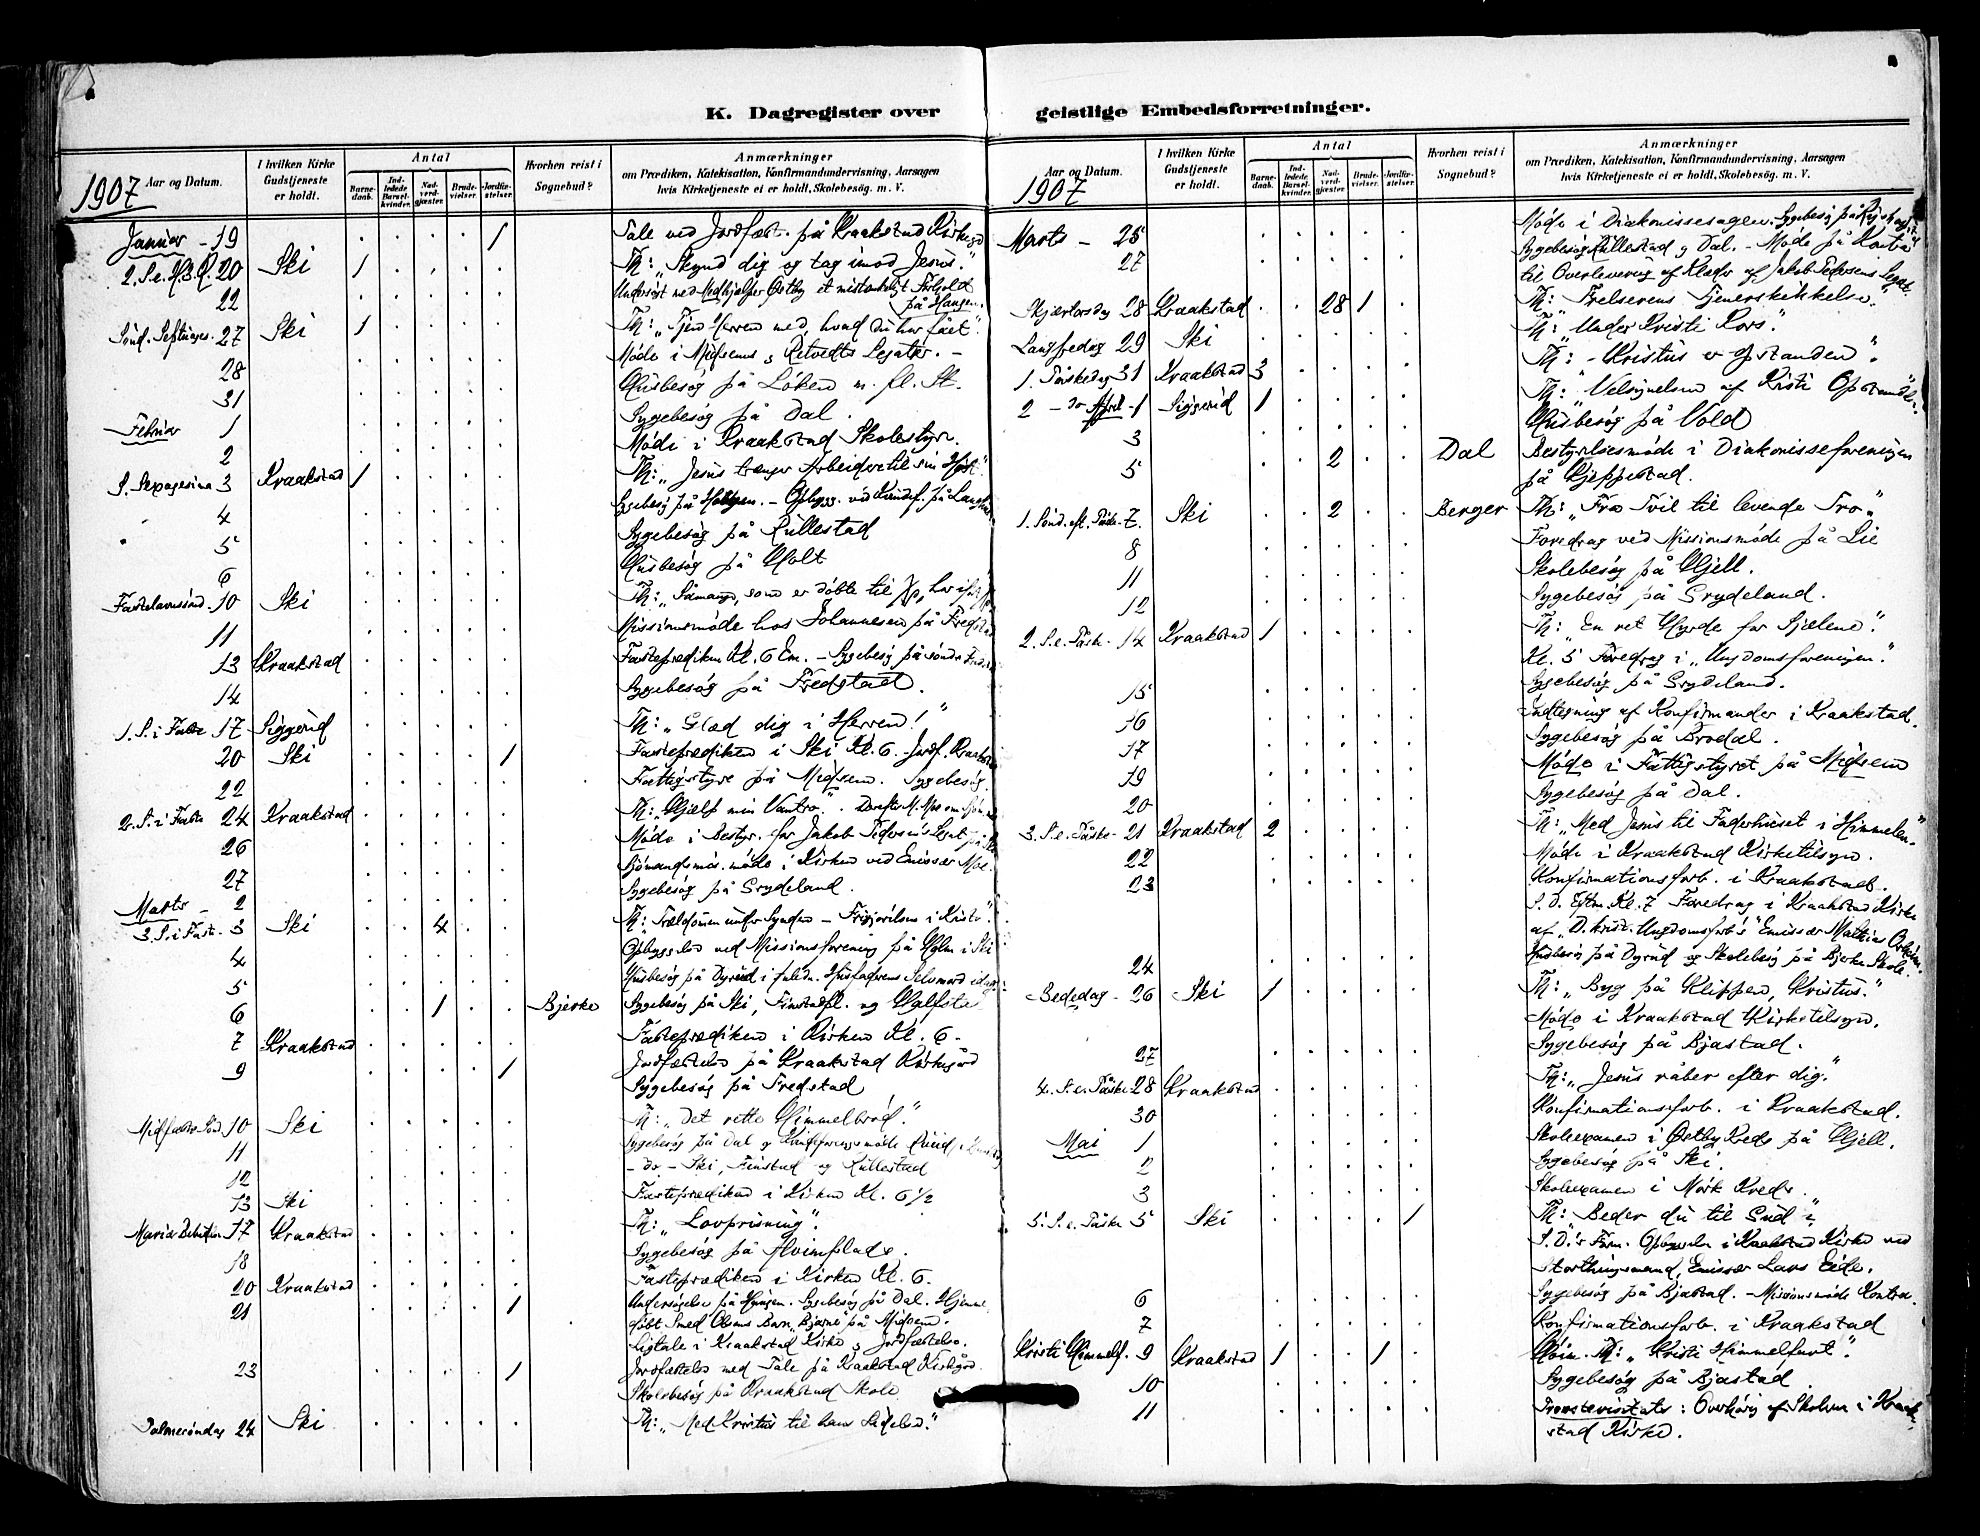 K. Dagregister over geistlige Embedsforretninger.
Aar og Datum.
I hvilken Kirke Gudstjeneste er holdt.
Antal
Barnedaab.
Indledede Barselkvinder.
Nadverdgjæster.
Brudevielser.
Jordfæstelser.
Hvorhen reist i Sognebud?
Anmærkninger
om Prædiken, Katekisation, Konfirmandundervisning, Aarsagen
hvis Kirketjeneste ei er holdt, Skolebesøg. m. V.
1907
Januar - 19 1 Tale ved Jordfæst. på Kraakstad Kirkegd
2. S. e. H.3.K. 20 Ski 1 Th: "Skynd dig og tag imod Jesus."
22 Undersøgt med Medhjælper Østby et mistænkeligt Forhold
på Haugen.
Sønd. Septuages. 27 Ski 1 Th: "Tjen Herren med, hvad du har fået".
28 Møde i Midsems & Retvedts Legater. -
31 Husbesøg på Løken m. fl. St.
Februar 1 Sygebesøg på Dal.
2 Møde i Kraakstad Skolestyre.
S. Sexagesima 3 Kraakstad 1 Th: "Jesus trænger Arbeidere til sin Høst."
4 Sygebesøg på Holtgen. - Opbygg. ved Kvindef. på
5 Sygebesøg på Rullestad
6 Husbesøg på Holt
Fastelavnssønd. 10 Ski Th: "Såmange, som er døbte til
11 Missionsmøde hos Johannesen på Fredstad
13 Kraakstad Fasteprædiken Kl. 6 Em. - Sygebesøg på søndre
14 Sygebesøg på Fredstad.
1. S. i Faste 17 Siggerud Th: "Glæd dig i Herren!"
20 Ski 1 Fasteprædiken i Ski Kl. 6. - Jordf. Kraakstad
22 Fattigstyre på Midsem. Sygebesøg.
2. S. i Faste 24 Kraakstad Th: "Hjælp min Vantro".
26 Møde i Bestyr. for Jakob Pedersens Legat på
27 Sjømandsmis. møde i Kirken ved Emissær Moe.
Marts - 2 Sygebesøg på Grydeland.
3. S. i Fast. 3 Ski 4 Th: Trældommen under Synden - Frigjørelsen i Kristo".
4 Opbyggelse ved Missionsforening på Holm i Ski
5 Husbesøg på Dyrud i Husfaderens Selvmord
6 1 Bjerke Sygebesøg på Ski, Finstadpl. og
7 Kraakstad Fasteprædiken i Kirken Kl. 6.
9 1 Jordfæstelse på Kraakstad Kirkegård
Sygebesøg på Fredstad
Midfaste Sønd. 10 Ski Th: "Det rette Himmelbrød."
11 Sygebesøg på Dal & Kvindeforeningsmøde
12 - do - Ski, Finstad og Rullestad
13 Ski Fasteprædiken i Kirken Kl. 6 1/2
Mariæ Bebudelse 17 Kraakstad Th: "Lovprisning".
18 Sygebesøg på
20 Kraakstad Fasteprædiken i Kirken Kl. 6.
21 1 Undersøgelse på Haugen. Sygebesøg på Dal. Hjemme
døbt Smed Olsens Barn "Bjarne" på Midsem.
Ligtale i Kraakstad Kirke & Jordfæstelse.
23 1 Jordfæstelse med Tale på Kraakstad Kirkegård.
Skolebesøg på Kraakstad Skole
Palmesøndag 24 Ski Th: "Med Kristus til hans Lidelse."
Aar og Datum.
I hvilken Kirke Gudstjeneste er holdt.
Antal
Barnedaab.
Indledede Barselkvinder.
Nadverdgjæster.
Brudevielser.
Jordfæstelser.
Hvorhen reist i Sognebud?
Anmærkninger
om Prædiken, Katekisation, Konfirmandundervisning, Aarsagen
hvis Kirketjeneste ei er holdt, Skolebesøg. m. V.
1907
Marts - 25 Møde i Diakonissesagen. Sygebesøg på
27 Sygebesøg Rullestad & Dal. - Møde på Kontoret
til Overlevering af Klæder af Jakob Pedersens Legat.
Skjærtorsdag 28 Kraakstad 28 1 Th: "Frelserens Tjenerskikkelse."
Langfredag 29 Ski Th: "Under Kristi Kors".
1. Påskedag 31 Kraakstad 3 Th: - Kristus er opstanden".
2 - do April - 1 Siggerud 1 Th: "Velsignelsen af Kristi Opstandelse.
3 Husbesøg på Vold
5 2 Dal Bestyrelsesmøde i Diakonisseforeningen
på Gjeppestad.
1. Sønd. eft. Påske - 7. Ski 2 Berger Th: "Fra Tvil til levende Tro"
8 Foredrag ved Missionsmøde på Lie
11 Skolebesøg på Hjell.
12 Sygebesøg på Grydeland.
2. S. e. Påsk. 14 Kraakstad 1 Th: "En ret Hyrde for Sjælene".
Kl. 5 Foredrag i "Ungdomsforeningen".
15 Sygebesøg på Grydeland.
16 Indtegning af Konfirmander i Kraakstad.
17 Sygebesøg på Brodal.
19 Møde i Fattigstyret på Midsem
20 Sygebesøg på Dal.
3. S. e. Påske - 21 Kraakstad 2 Th: "Med Jesus til Faderhuset i Himmelen."
22 Møde i Kraakstad Kirketilsyn.
23 Konfirmationsforb. i Kraakstad.
S. D. Eftm. Kl. 7 Foredrag i Kraakstad Kirke
af "D. krist. Ungdomsforb's" Emissær Mathias
24 Husbesøg på Dyrud og Skolebesøg på Bjerke Skole.
Bededag - 26 Ski 1 Th: "Byg på Klippen, Kristus."
Møde i Kraakstad Kirketilsyn.
27 Sygebesøg på Bjastad.
4. S. e. Påske 28 Kraakstad Th: "Jesus råber efter dig."
30 Konfirmationsforb. i Kraakstad.
Mai 1 Skoleexamen i Østby Kreds på Hjell.
2 Sygebesøg på Ski.
3 Skoleexamen i Mørk Kreds.
5. S. e. Påske 5 Ski 1 Th: Beder du til Gud"
S. D. 's Form. Opbyggelse i Kraakstad Kirke ved
Storthingsmand, Emissær Lars Eide.
6 Sygebesøg på Bjastad. - Missionsmøde Kontra.
7 Konfirmationsforb. i Kraakstad
Kristi Himmelf. 9 Kraakstad 1 1 Høim. Th: "Kristi Himmelfart".
10 Sygebesøg på Bjastad.
11 Provstevisitats: Overhøring af Skolen i Kraakstad
Kirke.